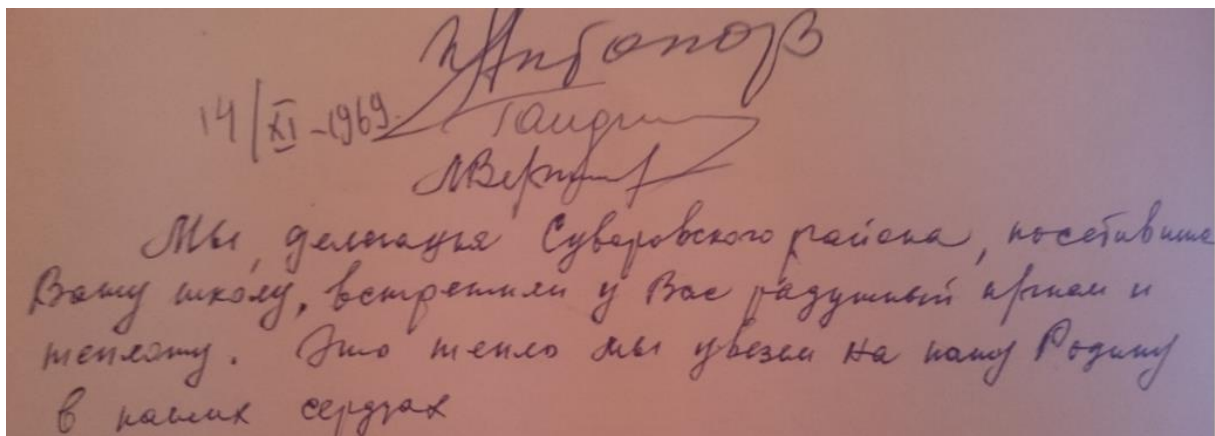 14/XI-1969.
Мы, делегация Суворовского района, посетивша
Вашу школу, встретили у Вас радушный прием и
теплоту. Это тепло мы увезем на нашу Родину
в наших сердцах